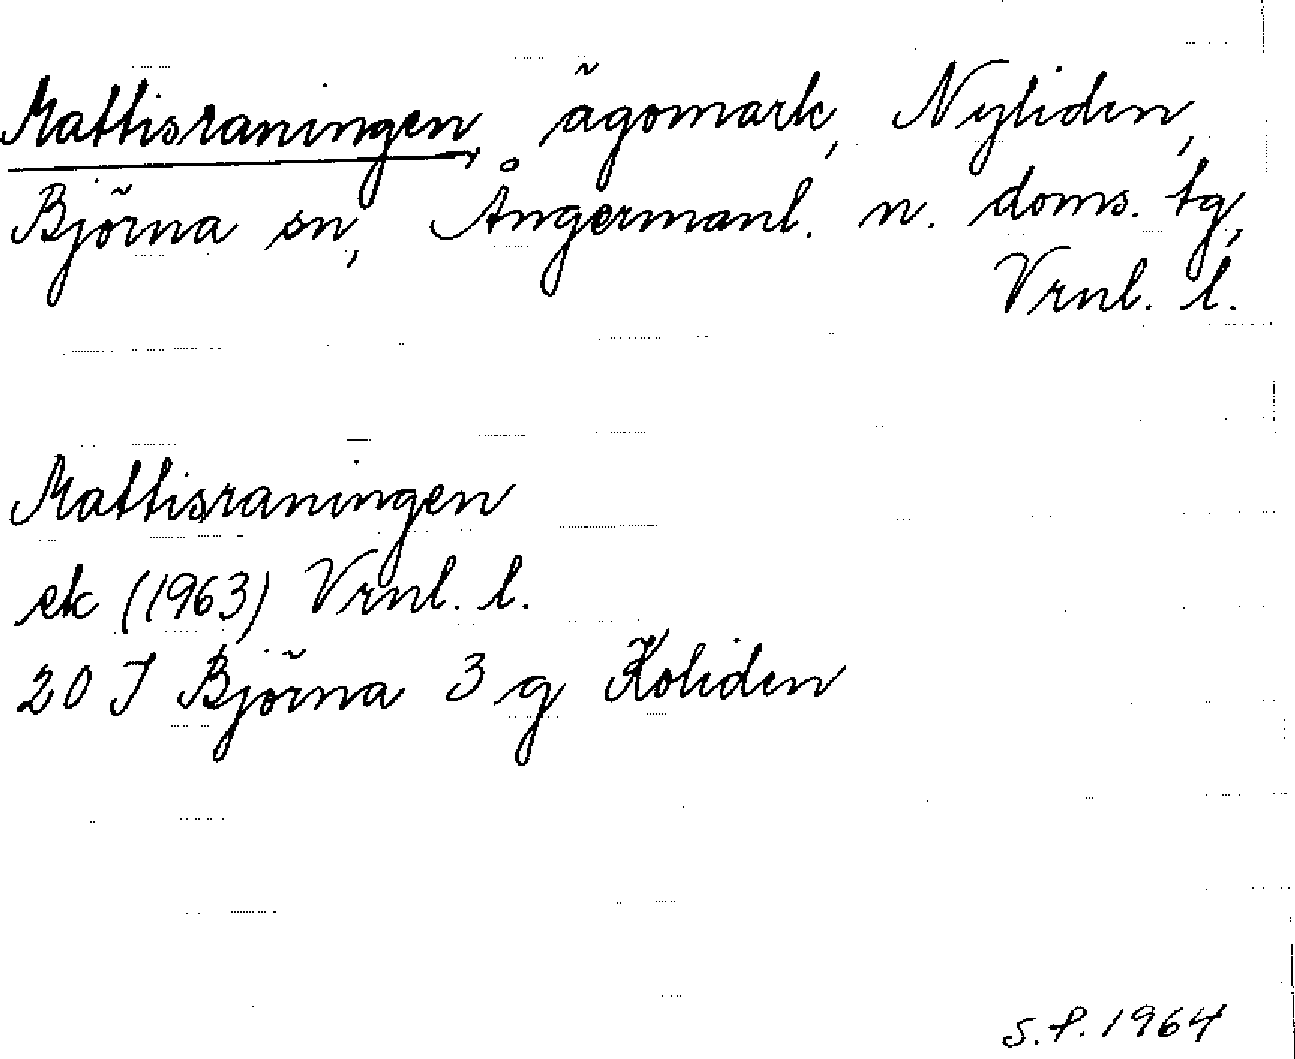 Mattisraningen, ägomark, Nyliden,
Björna sn, Ångermanl. n. doms. tg,
Vrnl. l.
Mattisraningen
ek (1963) Vrnl. l.
20 J Björna 3 g Koliden
S.P. 1964